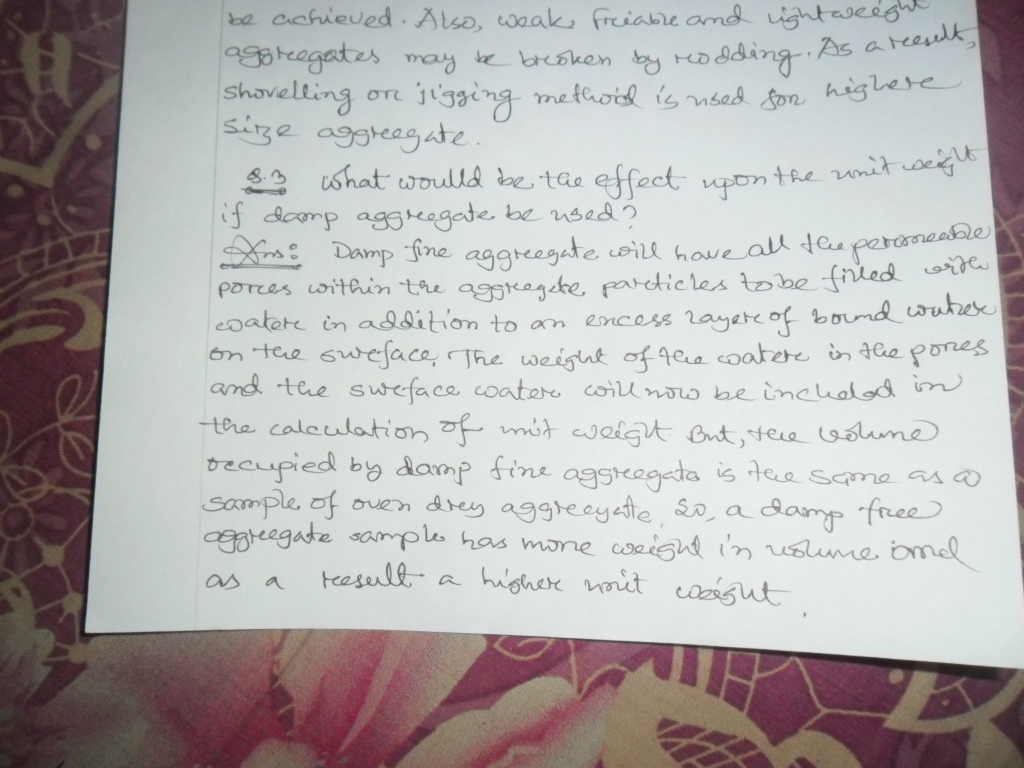 be achieved. Also, weak, friable and lightweight
aggregates may be broken by rodding. As a result,
shovelling or jigging method is used for higher
size aggregate.
8.3 What would be the effect upon the unit weight
if damp aggregate be used?
Ans: Damp fine aggregate will have all the permeable
pores within the aggregate particles to be filled with
water in addition to an excess layer of bound water
on the surface. The weight of the water in the pores
and the surface water will now be included in
the calculation of unit weight. But, the volume
occupied by damp fine aggregate is the same as a
sample of oven dry aggregate. So, a damp free
aggregate sample has more weight in volume and
as a result a higher unit weight.